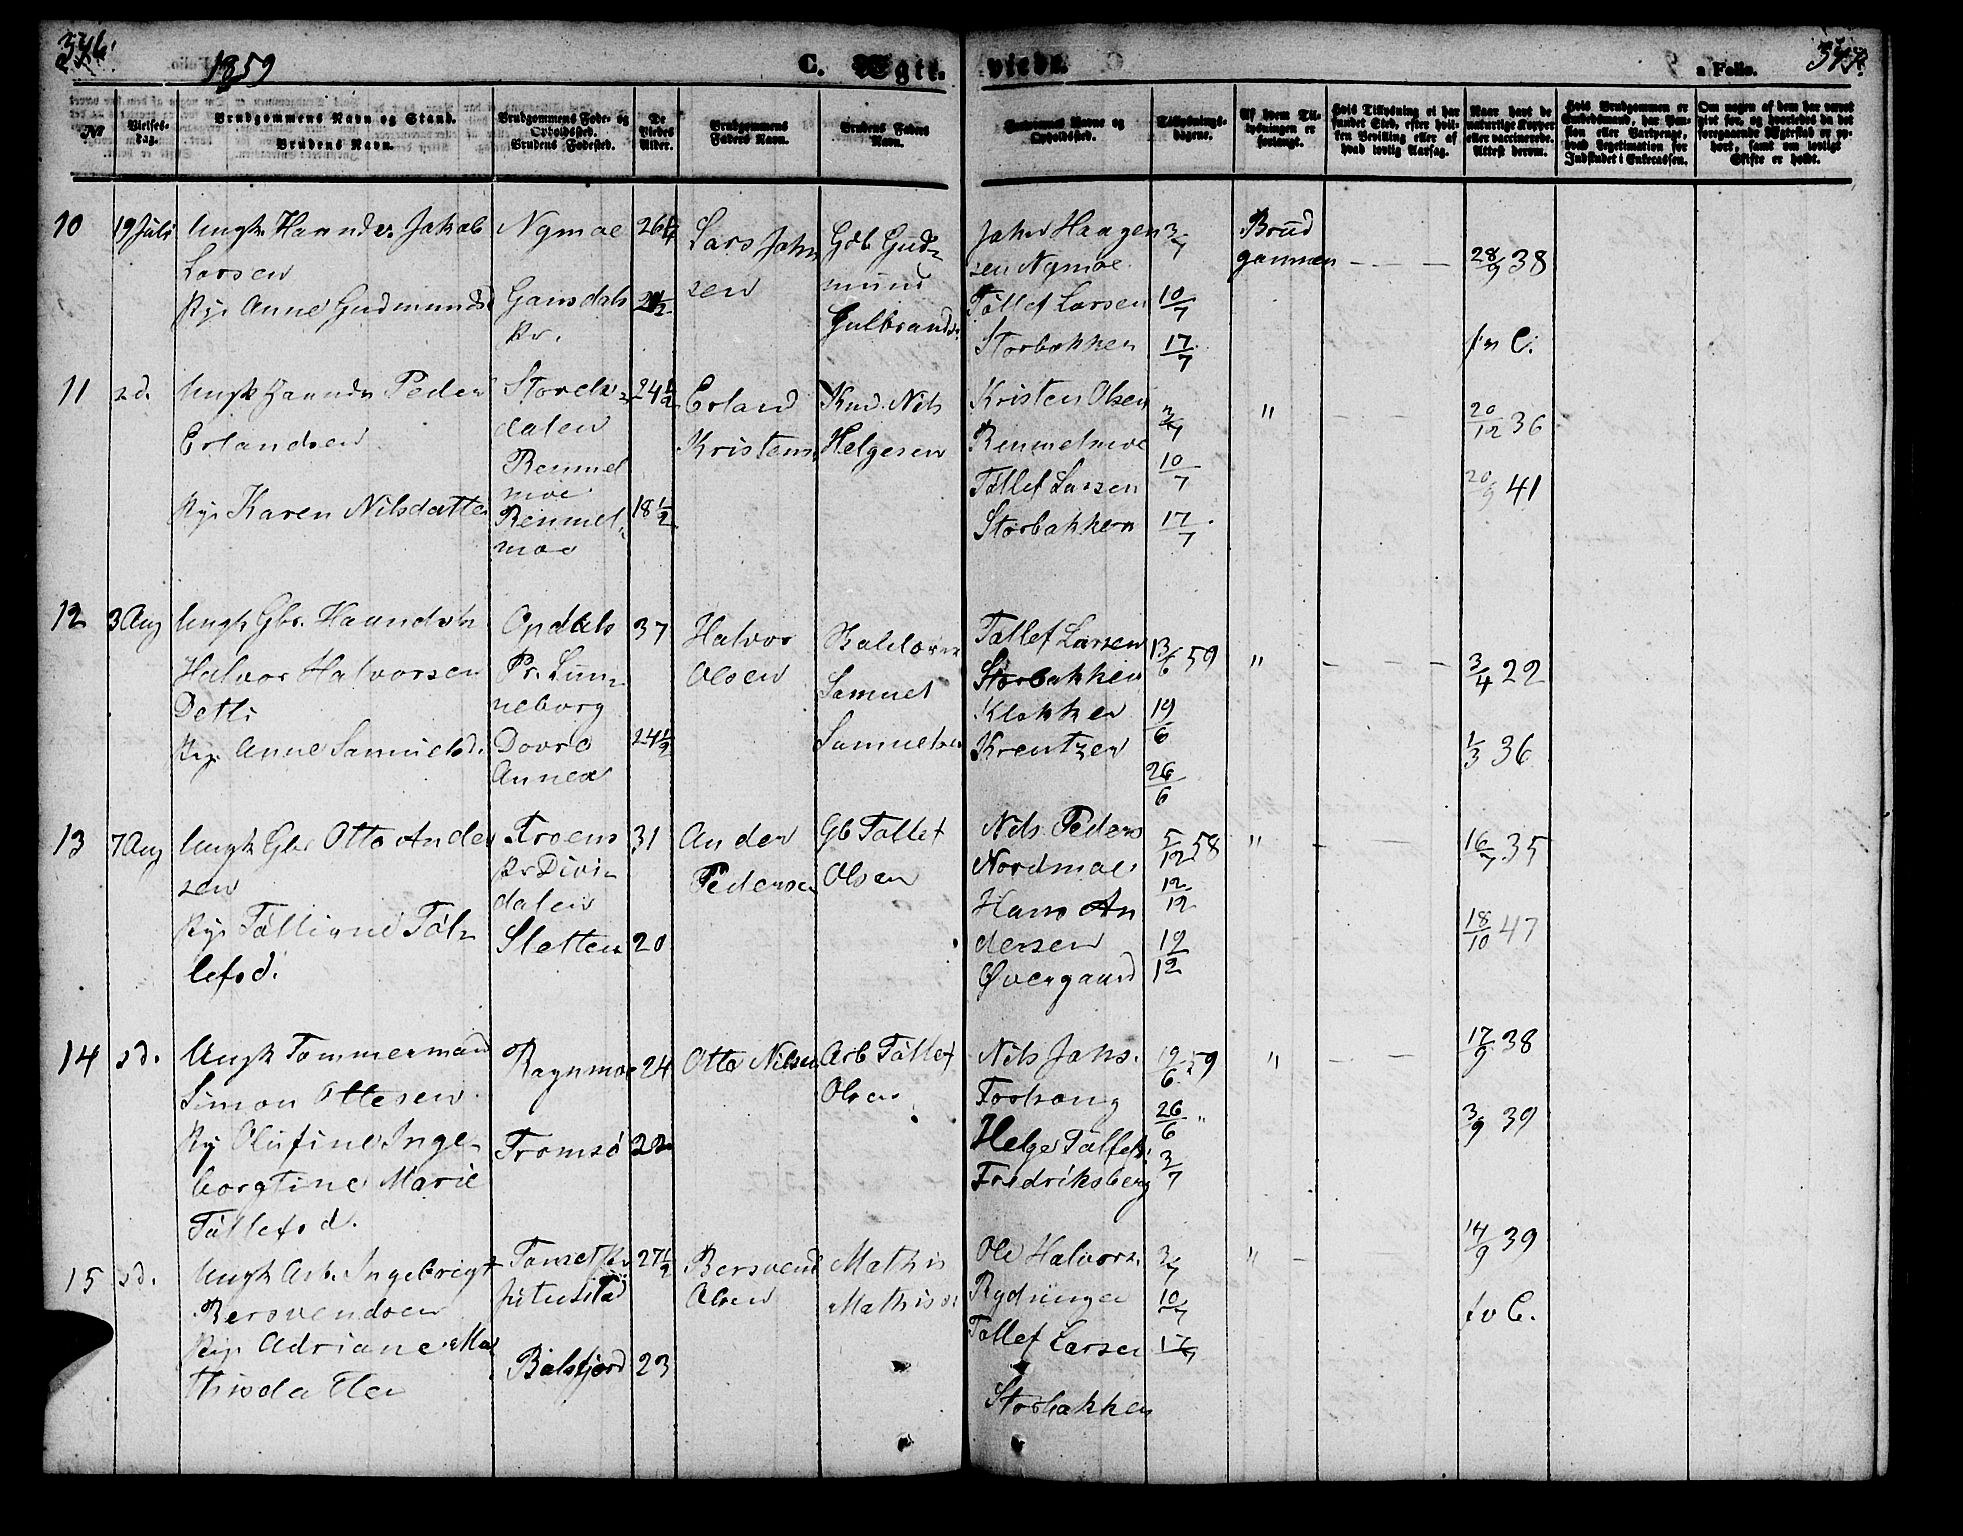 346.
1859
C. Egte-
viede.
a Folio.
347.
№
Vielses-
dag.
Brudgommens Navn og Stand.
Brudens Navn.
Brudgommens Føde- og
Opholdssted.
Brudens Fødested.
De
Viedes
Alder.
Brudgommens
Faders Navn.
Brudens Faders
Navn.
Forlovernes Navne og
Opholdssted.
Tillysnings-
dagene.
Af hvem Til-
lysningen er
forlangt.
Hvis Tillysning ei har
fundet Sted, efter hvil-
ken Bevilling eller af
hvad lovlig Aarsag.
Naar havt de
naturlige Kopper
eller vaccinerede.
Attest derom.
Hvis Brudgommen er
Embedsmand, har Pen-
sion eller Vartpenge,
hvad Legitimation for
Indskudet i Enkecassen.
Om nogen af dem har været
givt før, og hvorledes da det
foregaaende Egteskab er op-
hørt, samt om lovligt
Skifte er holdt.
10
19 Juli
Ungk. Haandv. Jakob
Larsen
Pige Anne Gudmundsd
Nymoe
Gausdals
Pr.
26½
21½
Lars John
sen
Gdb Gud-
mund
Gulbrands.
John Haagen
sen Nymoe
Tollef Larsen
Storbakken
3/7
10/7
17/7
Brud
gommen
28/9 38
før C.
11
s d.
Ungk Haandv Peder
Erlandsen
Pige Karen Nilsdatte
Storelv-
dalen
Remmel
moe
Remmel-
moe
24½
18½
Erland
Kristens.
Knd. Nils
Helgesen
Kristen Olsen
Remmelmoe
Tollef Larsen
Storbakken
3/7
10/7
17/7
"
20/12 36
20/9 41
12
3 Aug
Ungk Gbr. Haandvk
Halvor Halvorsen
Detli
Pige Anne Samuelsd.
Opdals
Pr. Lun-
neborg
Dovre
Annex
37
24½
Halvor
Olsen
Samuel
Samuelsen
Tollef Larsen
Storbakken
Klokker
Kreutzer
13/6 59
19/6
26/6
"
3/4 22
1/3 36
13
7 Aug
Ungk Gbr Otto Ander
sen
Pige Tolline Tol-
lefsd.
Troens
Pr Divi-
dalen
Sletten
31
20
Ander
Pedersen
Gb Tollef
Olsen
Nils Peders
Nordmoe
Hans An
dersen
Øvergaard
5/12 58
12/12
19/12
"
16/7 35
18/10 47
14
s d.
Ungk Tømmermand
Simon Ottesen
Pig Olufine Inge-
borgtine Marie
Tollefsd.
Ragnmoe
Tromsø
24
22
Otto Nilsen
Arb Tollef
Olsen
Nils Johs.
Forhaug
Helge Tollefs.
Fredriksberg
19/6 59
26/6 "
3/7
"
17/9 38
3/9 39
15
s d.
Ungk Arb. Ingebrigt
Bersvendsen
Pige Adriane Ma
thisda tter
Tønset Pr
Balsfjord
27½
23
Bersvend
Olsen
Mathis
Mathisen
Ole Halvors.
Rydningen
Tollef Larsen
Storbakken
3/7
10/7
17/7
"
14/9 39
fv C.